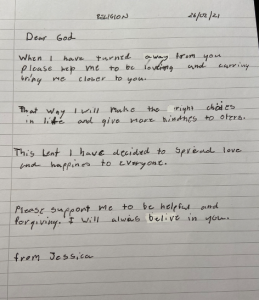 RELIGION 26/02/21
Dear God
When I have turned away from you
please help me to be loveing and carring
bring me closer to you.
That way I will make the right choices
in life and give more kindness to oters.
This Lent I have decided to spread love
and happines to everyone.
Please support me to be helpful and
forgiving. I will always belive in you.
from Jessica